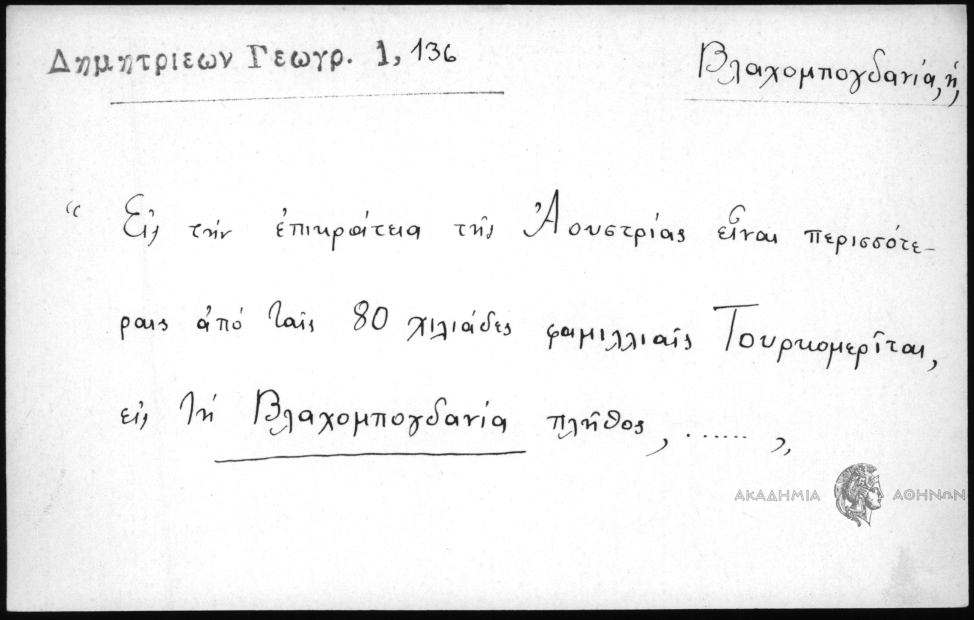 Δημητριεων Γεωγρ. 1, 136
Βλαχομπογδανία, ἡ,
“ Εἰς τὴν ἐπικράτεια τῆς Ἀουστρίας εἶναι περισσότε-
ραις ἀπό ταῖς 80 χιλιάδες φαμιλλιαῖς Τουρκομερῖται,
εἰς τὴ Βλαχομπογδανία πλῆθος, ...... ”,
ΑΚΑΔΗΜΙΑ ΑΘΗΝΩΝ